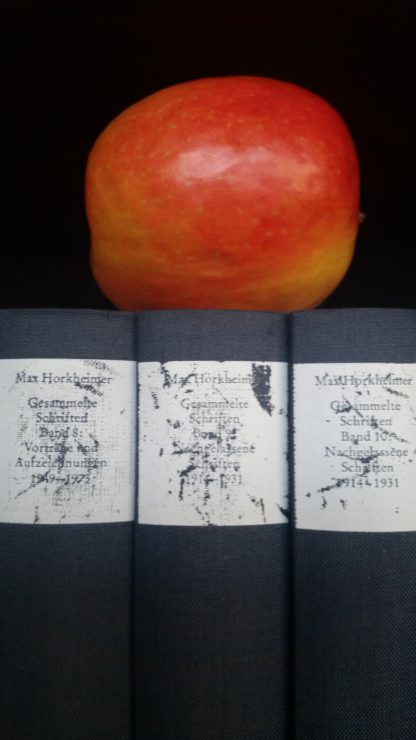 Max Horkheimer
Gesammelte
Schriften
Band 8:
Vorträge und
Aufzeichnungen
1949–1973
Max Horkheimer
Gesammelte
Schriften
Band
Nachgelassene
Schriften
1931
Max Horkheimer
Gesammelte
Schriften
Band 10:
Nachgelassene
Schriften
1914–1931